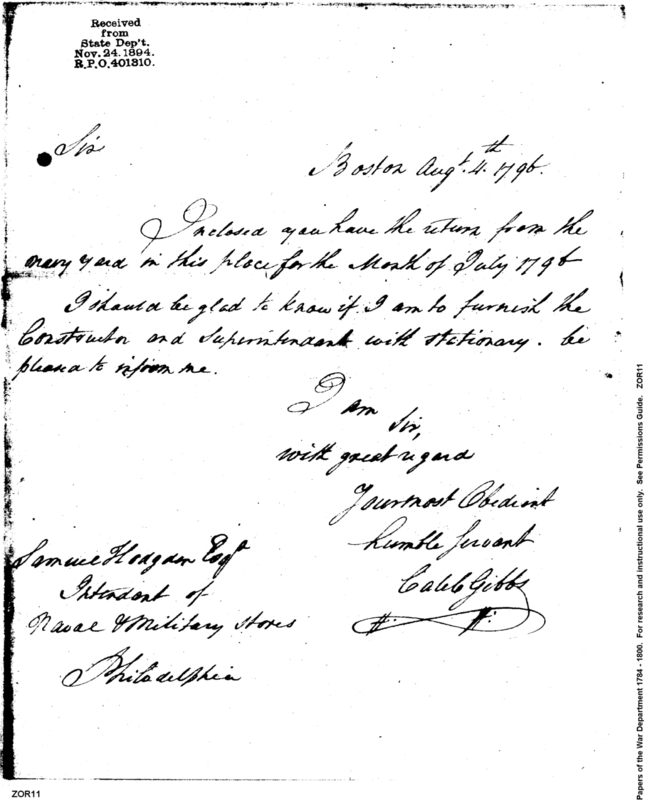 Received
from
State Dep't.
Nov. 24. 1894.
R.P.O. 401310.
Sir
Boston Augt. 4th. 1796.
Inclosed you have the return from the
navy yard in this place for the Month of July 1796
I should be glad to know if I am to furnish the
Constructor and Superintendant with stationary. be
pleased to inform me.
I am
Sir,
with great regard
Your most Obedient
humble Servant
Caleb Gibbs
Samuel Hodgdon Esqr
Intendant of
Naval & Military Stores
Philadelphia
Papers of the War Department 1784 - 1800. For research and instructional use only. See Permissions Guide. ZOR11
ZOR11